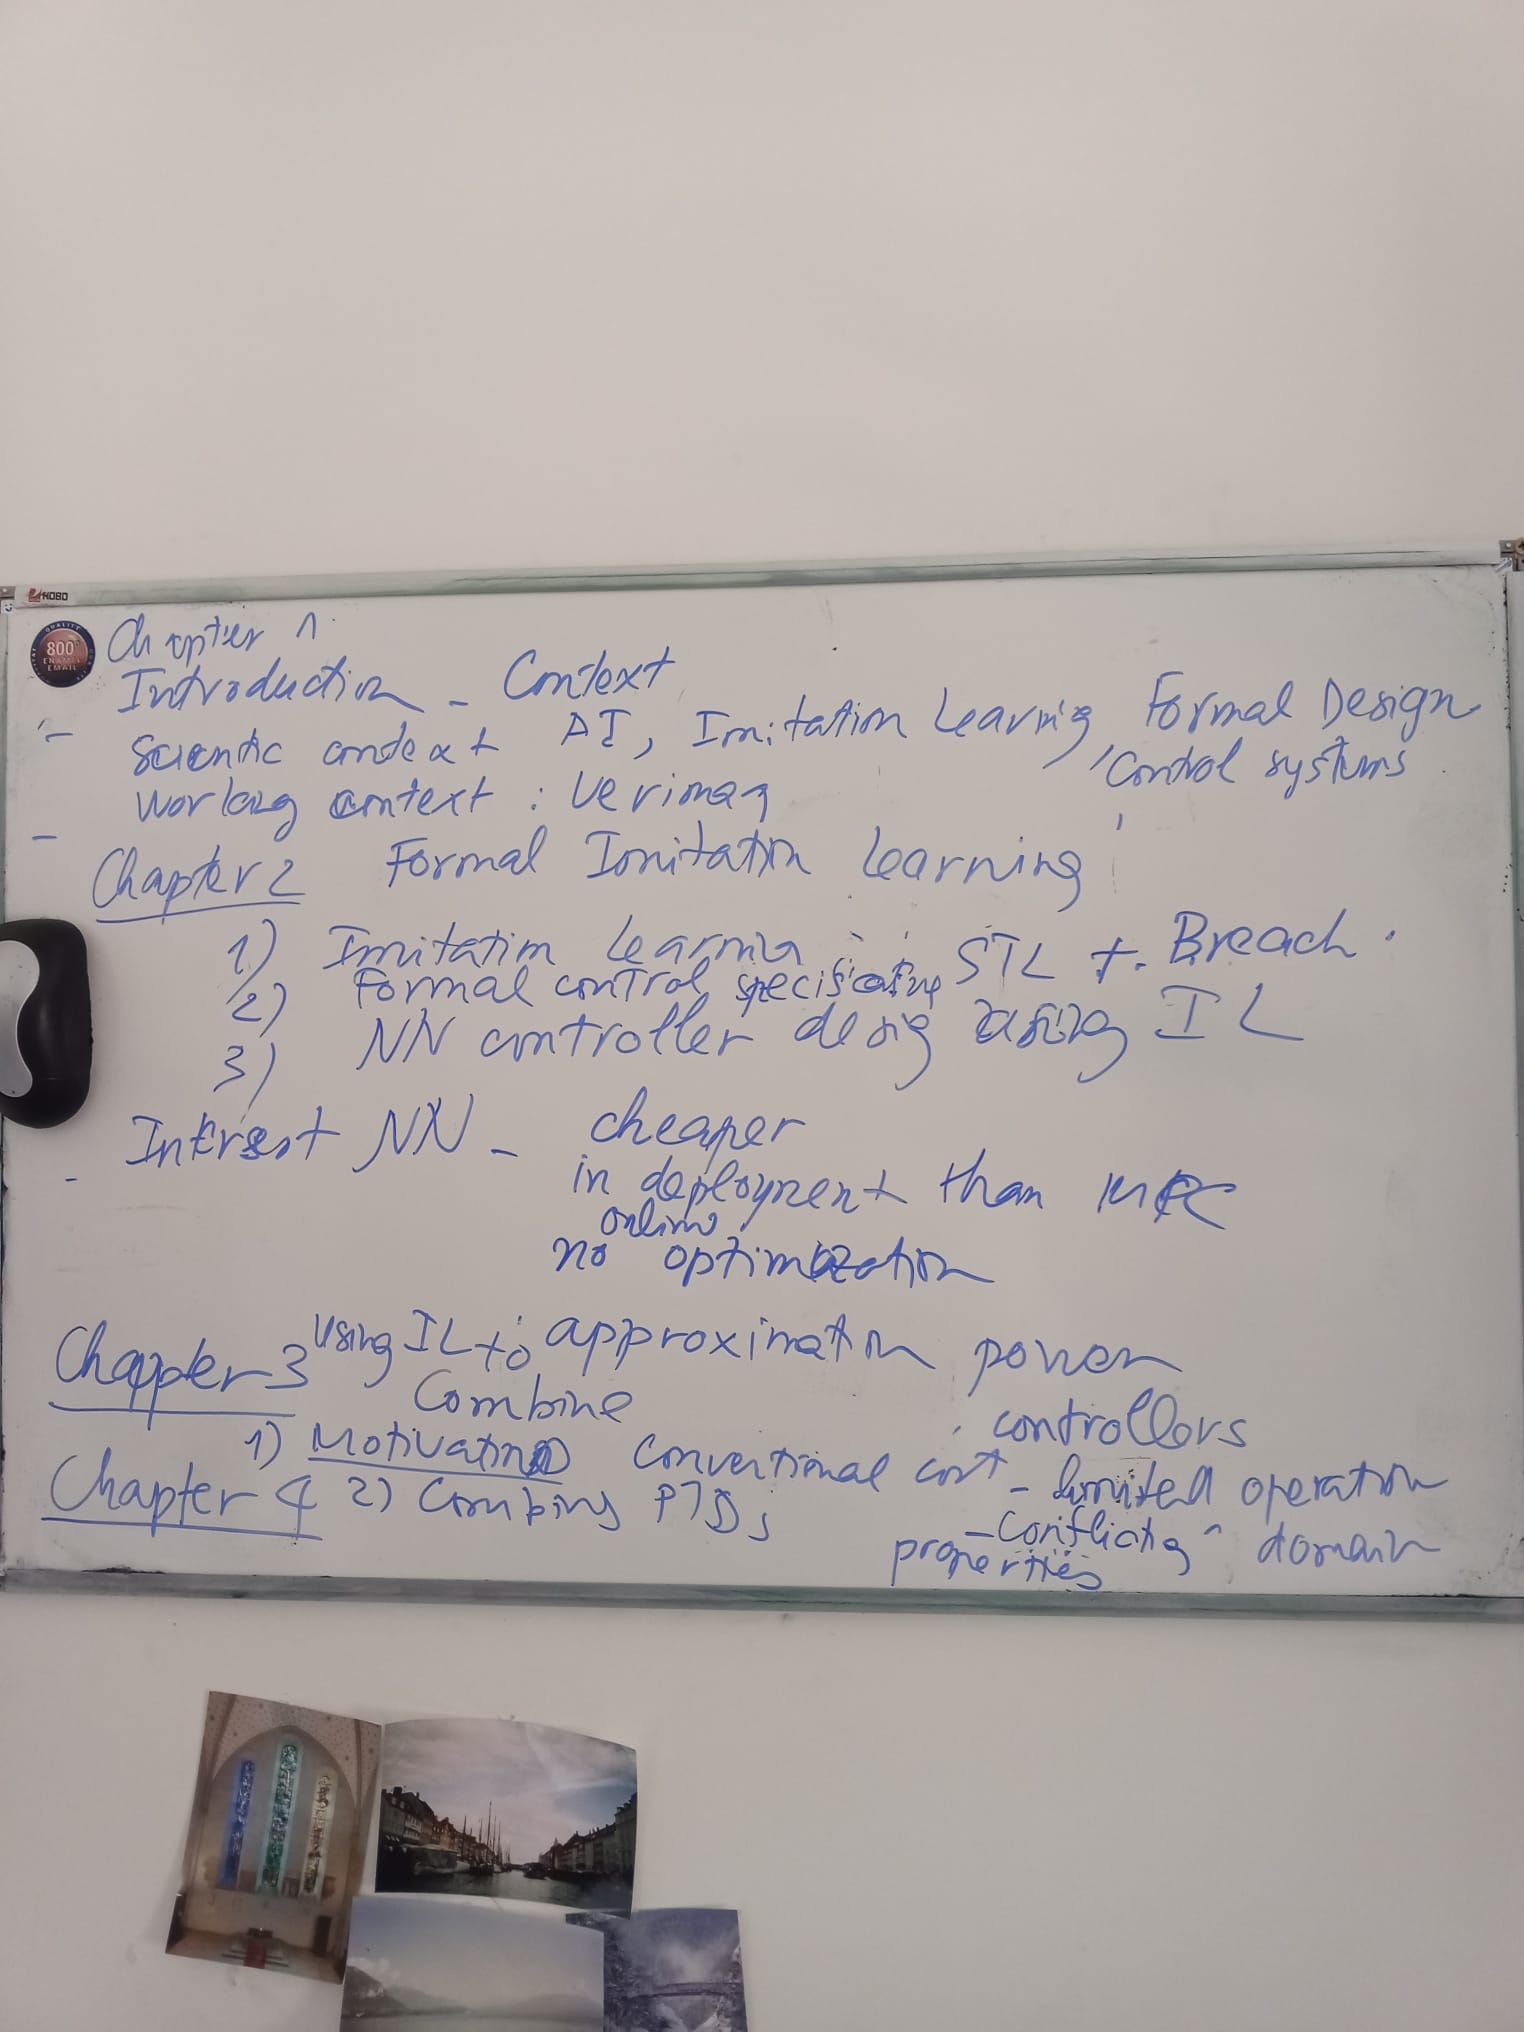 HOBO
QUALITY
800°
ENAMEL
EMAIL
Chapter 1
Introduction - Context
- Scientic context AI, Imitation Learning, Formal Design
Control systems
- Working context : Verimag
Chapter 2 Formal Imitation Learning
1) Imitation Learning
2) Formal control specification STL + Breach
3) NN controller desig using IL
- Interest NN - cheaper
in deployment than MPC
online
no optimization
Chapter 3 Using IL to approximation power
controllers
Combine
1) Motivation conventional cont - limited operation
domain
Chapter 4 2) Combing PIDs
- Conflictig
properties